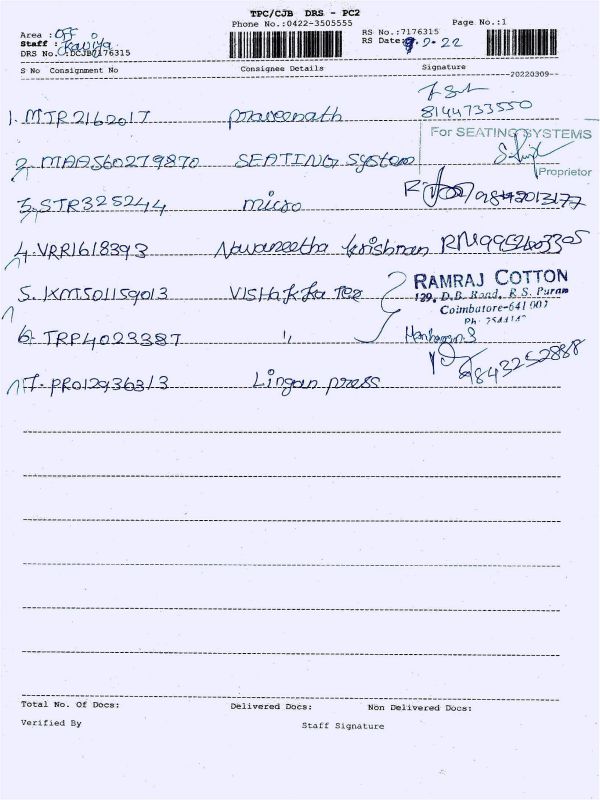 TPC/CJB DRS - PC2
Phone No.:0422-3505555
Page No.:1
Area : Off
Staff : Kaviya
DRS No. :DCJB07176315
RS No.:7176315
RS Date: 9.3.22
S No Consignment No Consignee Details Signature
20220309
1. MTR2162017 praveenath 8144733550
2. MAA560279870 SEATING System
For SEATING SYSTEMS
Proprietor
3. STR325244 micro 9842013177
4. VRR1618393 Navaneetha krishnan
5. KMT501159013
RAMRAJ COTTON
129, D.B. Road, R.S. Puram
Coimbatore-641 002
6. TRP4023387 "
7. PRO12936313 Lingan press 9843252888
Total No. Of Docs: Delivered Docs: Non Delivered Docs:
Verified By Staff Signature